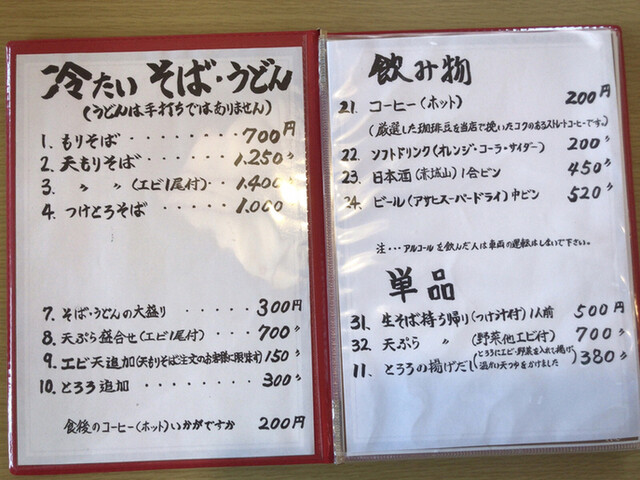 冷たい そば・うどん
(うどんは手打ちではありません)
1. もりそば ・・・・・・・ 700円
2. 天もりそば ・・・・・・ 1.250〃
3. 〃 〃 (エビ1尾付) ・・・ 1.400〃
4. つけとろそば ・・・・・ 1.000〃
7. そば・うどんの大盛り 300円
8. 天ぷら盛合せ(エビ1尾付) ・・ 700〃
9. エビ天追加(天もりそば注文のお客様に限味す) 150〃
10. とろろ追加 ・・・・・・・ 300〃
食後のコーヒー(ホット)いかがですか 200円
飲み物
21. コーヒー(ホット) 200円
(厳選した珈琲豆を当店で挽いたコクのあるストレートコーヒーです。)
22. ソフトドリンク(オレンジ・コーラ・サイダー) 200〃
23. 日本酒(赤城山)1合ビン 450〃
24. ビール(アサヒスーパードライ)中ビン 520〃
注・・・アルコールを飲んだ人は車両の運転はしないで下さい。
単品
31. 生そば持ち帰り(つけ汁付)1人前 500円
32 天ぷら 〃 (野菜他エビ付) 700〃
11. とろろの揚げだし(とろろにエビ・野菜を入れて揚げ、温かい天つゆをかけました) 380〃